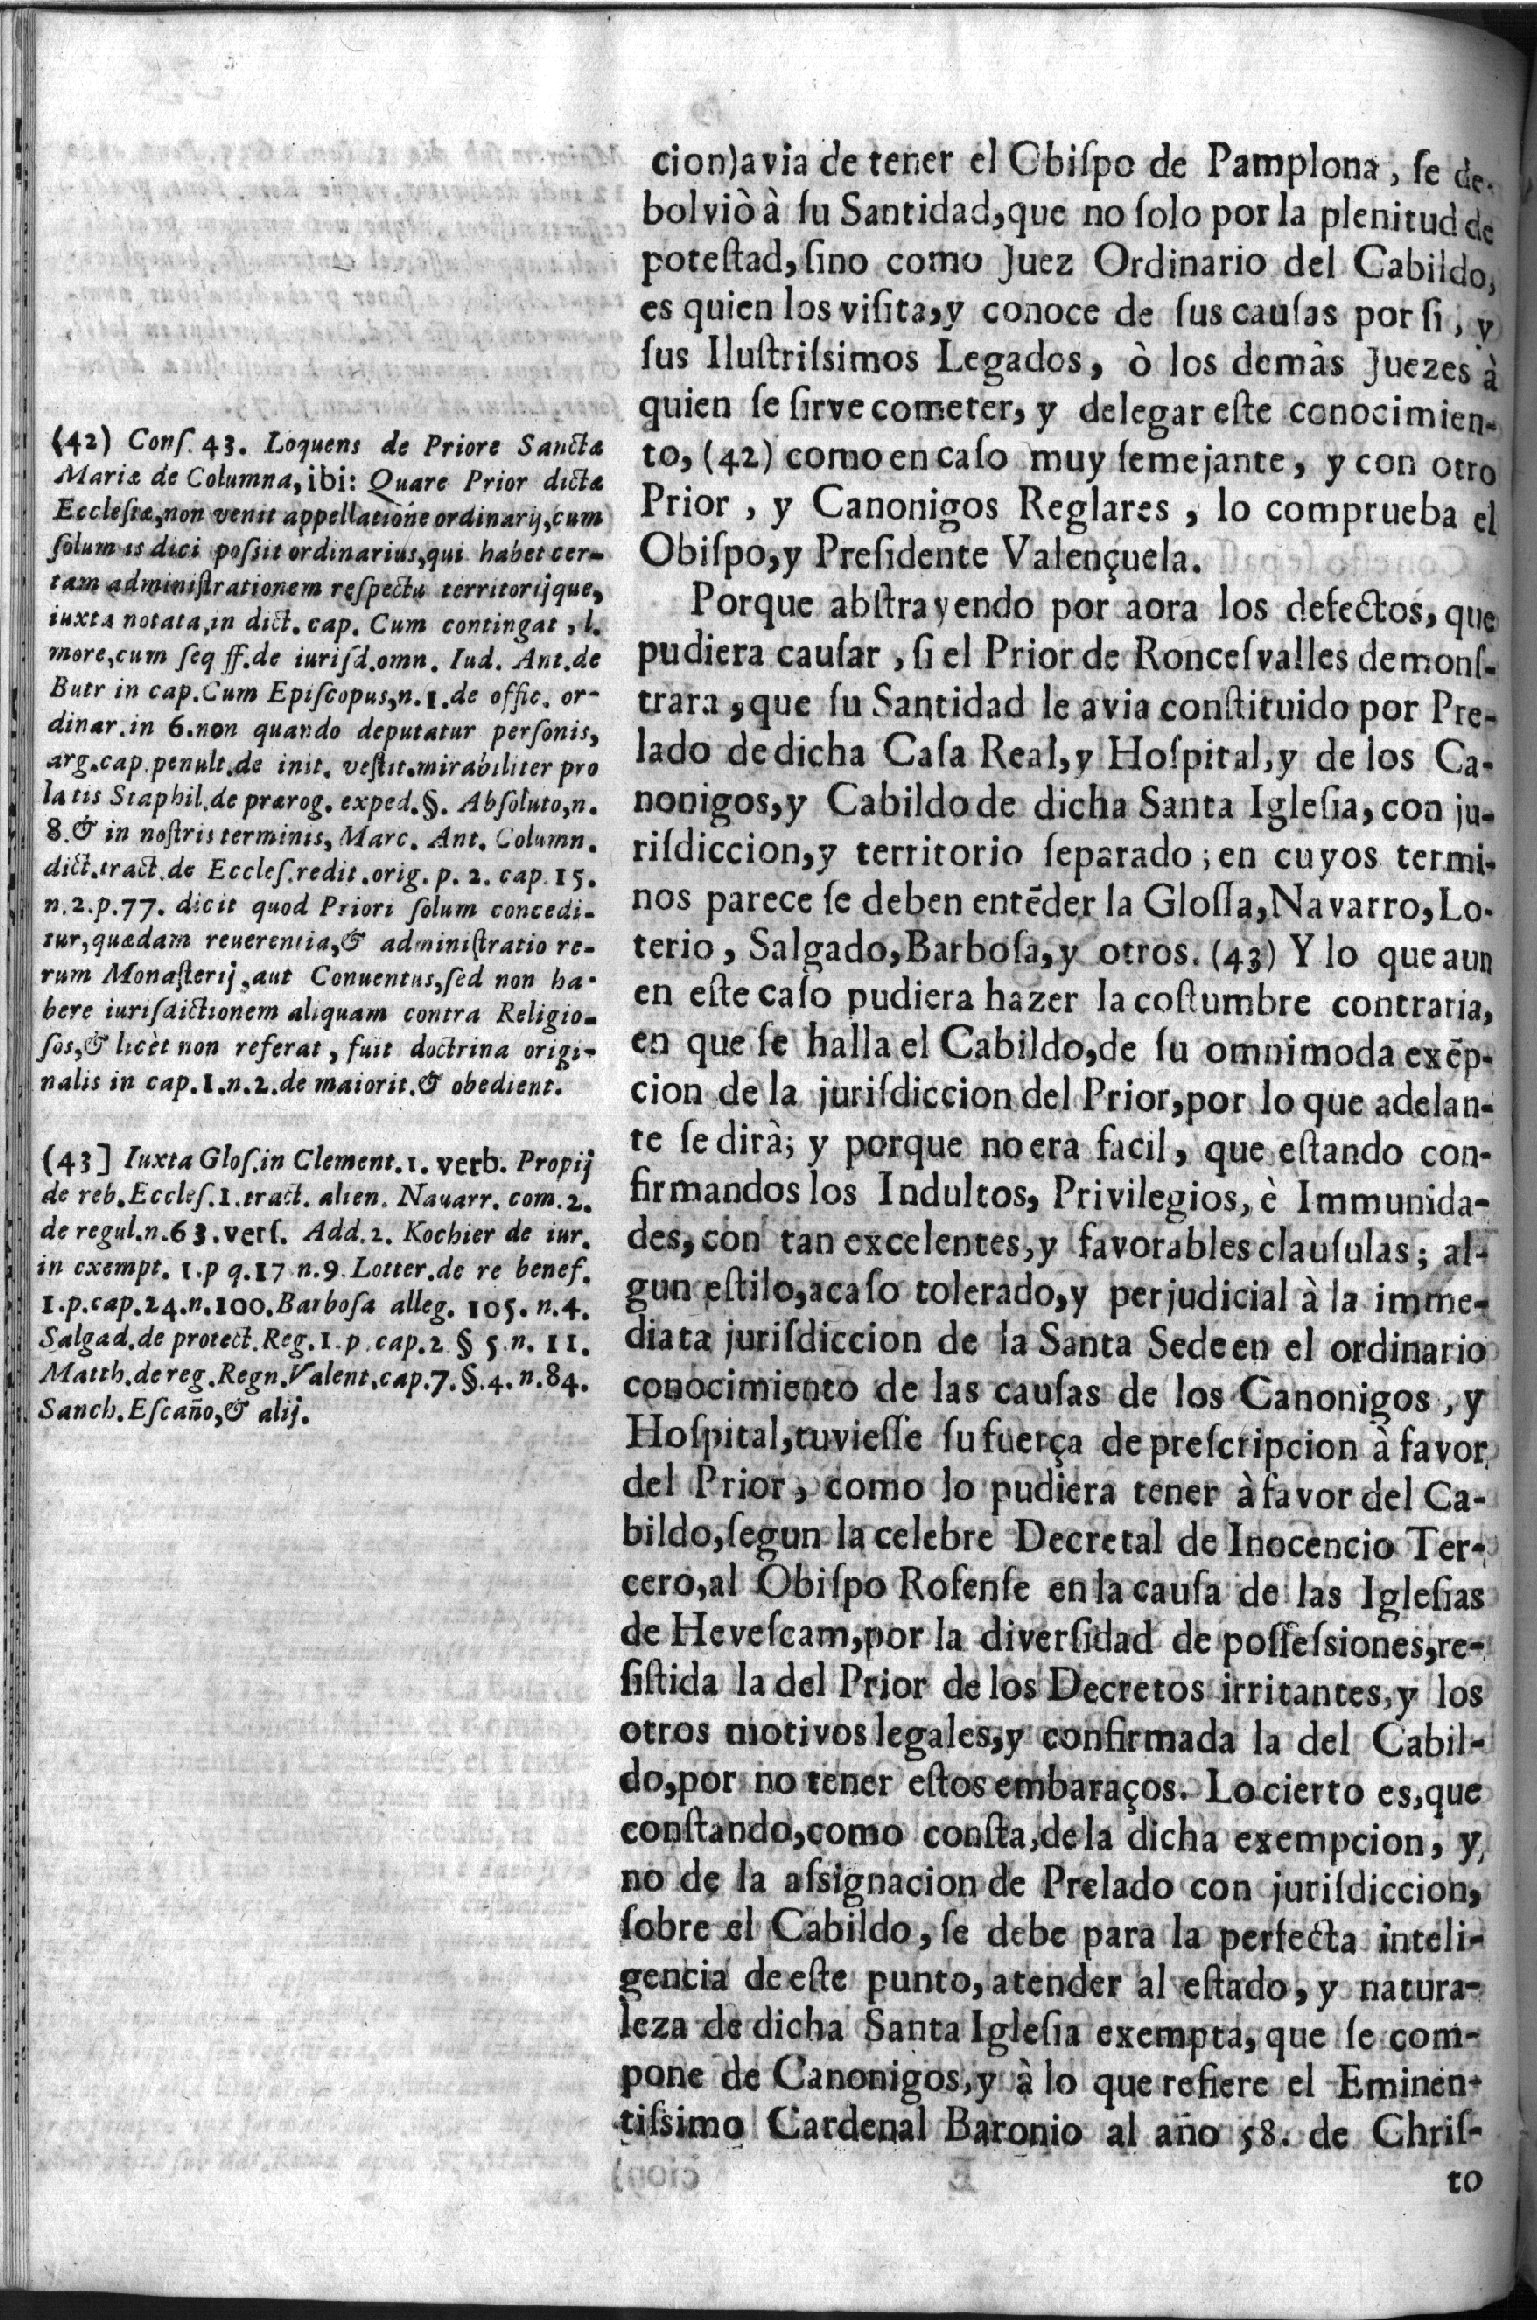 cion) avia de tener el Obiſpo de Pamplona, ſe de-
bolviò à ſu Santidad, que no ſolo por la plenitud de
poteſtad, ſino como Juez Ordinario del Cabildo,
es quien los viſita, y conoce de ſus cauſas por ſi, y
ſus Iluſtriſsimos Legados, ò los demàs Juezes à
quien ſe ſirve cometer, y delegar eſte conocimien-
to, (42) como en caſo muy ſemejante, y con otro
Prior, y Canonigos Reglares, lo comprueba el
Obiſpo, y Preſidente Valençuela.
Porque abſtrayendo por aora los defectos, que
pudiera cauſar, ſi el Prior de Ronceſvalles demonſ-
trara, que ſu Santidad le avia conſtituido por Pre-
lado de dicha Caſa Real, y Hoſpital, y de los Ca-
nonigos, y Cabildo de dicha Santa Igleſia, con ju-
riſdiccion, y territorio ſeparado; en cuyos termi-
nos parece ſe deben entẽder la Gloſſa, Navarro, Lo-
terio, Salgado, Barboſa, y otros. (43) Y lo que aun
en eſte caſo pudiera hazer la coſtumbre contraria,
en que ſe halla el Cabildo, de ſu omnimoda exẽp-
cion de la juriſdiccion del Prior, por lo que adelan-
te ſe dirà; y porque no era facil, que eſtando con-
firmandos los Indultos, Privilegios, è Immunida-
des, con tan excelentes, y favorables clauſulas; al-
gun eſtilo, acaſo tolerado, y perjudicial à la imme-
diata juriſdiccion de la Santa Sede en el ordinario
conocimiento de las cauſas de los Canonigos, y
Hoſpital, tuvieſſe ſu fuerça de preſcripcion à favor
del Prior, como lo pudiera tener à favor del Ca-
bildo, ſegun la celebre Decretal de Inocencio Ter-
cero, al Obiſpo Roſenſe en la cauſa de las Igleſias
de Heveſcam, por la diverſidad de poſſeſsiones, re-
ſiſtida la del Prior de los Decretos irritantes, y los
otros motivos legales, y confirmada la del Cabil-
do, por no tener eſtos embaraços. Lo cierto es, que
conſtando, como conſta, de la dicha exempcion, y
no de la aſsignacion de Prelado con juriſdiccion,
ſobre el Cabildo, ſe debe para la perfecta inteli-
gencia de eſte punto, atender al eſtado, y natura-
leza de dicha Santa Igleſia exempta, que ſe com-
pone de Canonigos, y à lo que refiere el Eminen-
tiſsimo Cardenal Baronio al año 58. de Chriſ-
to
(42) Conſ. 43. Loquens de Priore Sanctæ
Mariæ de Columna, ibi: Quare Prior dictæ
Eccleſiæ, non venit appellatione ordinarij, cum
ſolum is dici poſsit ordinarius, qui habet cer-
tam adminiſtrationem reſpectu territorijque,
iuxta notata, in dict. cap. Cum contingat, l.
more, cum ſeq ff. de iuriſd. omn. Iud. Ant. de
Butr in cap. Cum Epiſcopus, n. 1. de offic. or-
dinar. in 6. non quando deputatur perſonis,
arg. cap. penult. de init. veſtit. mirabiliter pro
latis Staphil. de prærog. exped. §. Abſoluto, n.
8. & in noſtris terminis, Marc. Ant. Column.
dict. tract. de Eccleſ. redit. orig. p. 2. cap. 15.
n. 2. p. 77. dicit quod Priori ſolum concedi-
tur, quædam reuerentia, & adminiſtratio re-
rum Monaſterij, aut Conuentus, ſed non ha-
bere iuriſdictionem aliquam contra Religio-
ſos, & licèt non referat, fuit doctrina origi-
nalis in cap. 1. n. 2. de maiorit. & obedient.
(43] Iuxta Gloſ. in Clement. 1. verb. Propij
de reb. Eccleſ. 1. tract. alien. Nauarr. com. 2.
de regul. n. 63. verſ. Add. 2. Kochier de iur.
in exempt. 1. p q. 17 n. 9. Lotter. de re benef.
1. p. cap. 24. n. 100. Barboſa alleg. 105. n. 4.
Salgad. de protect. Reg. 1. p. cap. 2 § 5. n. 11.
Matth. de reg. Regn. Valent. cap. 7. §. 4. n. 84.
Sanch. Eſcaño, & alij.